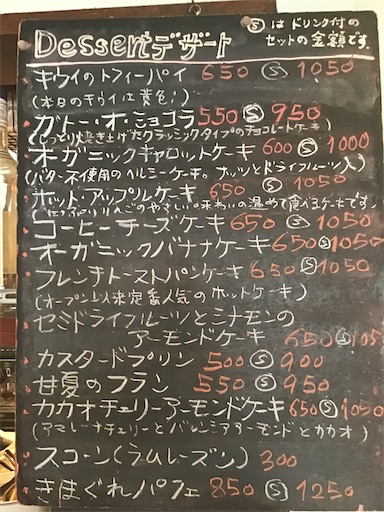 Dessert デザート
Ⓢ は ドリンク付の
セットの金額です。
キウイのトフィーパイ 650 Ⓢ 1050
(本日のキウイは黄色!)
ガトー・オ・ショコラ 550 Ⓢ 950
(しっとり焼き上げたクラシックタイプのチョコレートケーキ)
オーガニックキャロットケーキ 600 Ⓢ 1000
(バター不使用のヘルシーケーキ。ナッツとドライフルーツ入)
ホット・アップルケーキ 650 Ⓢ 1050
りんごのやさしい味わいの温めて食べるケーキです。
コーヒーチーズケーキ 650 Ⓢ 1050
オーガニックバナナケーキ 650 Ⓢ 1050
フレンチトーストパンケーキ 650 Ⓢ 1050
(オープン以来定番人気のホットケーキ)
セミドライフルーツとシナモンの
アーモンドケーキ 650 Ⓢ 105
カスタードプリン 500 Ⓢ 900
甘夏のフラン 550 Ⓢ 950
カカオチェリーアーモンドケーキ 650 Ⓢ 1050
(アマレーナチェリーとバレンシアアーモンドとカカオ)
スコーン(ラムレーズン) 300
きまぐれパフェ 850 Ⓢ 1250